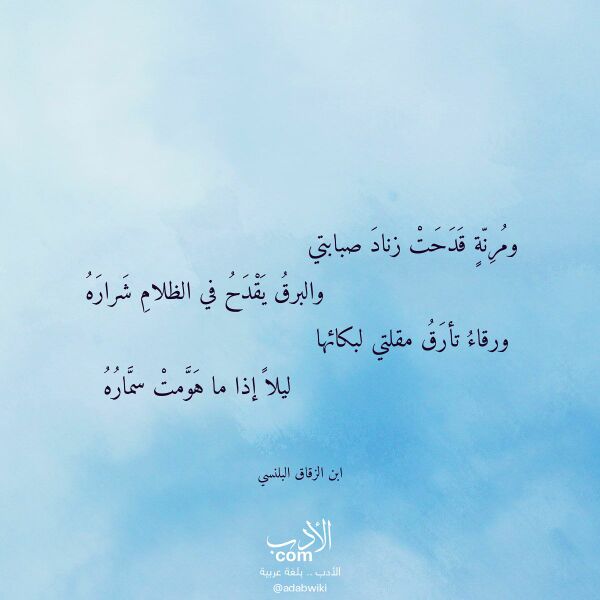 ومُرِنّةٍ قَدَحَتْ زنادَ صبابتي
والبرقُ يَقْدَحُ في الظلامِ شَرارَهُ
ورقاءُ تأرَقُ مقلتي لبكائها
ليلاً إذا ما هَوَّمتْ سمَّارُهُ
ابن الزقاق البلنسي
الأدب
com
الأدب .. بلغة عربية
@adabwiki